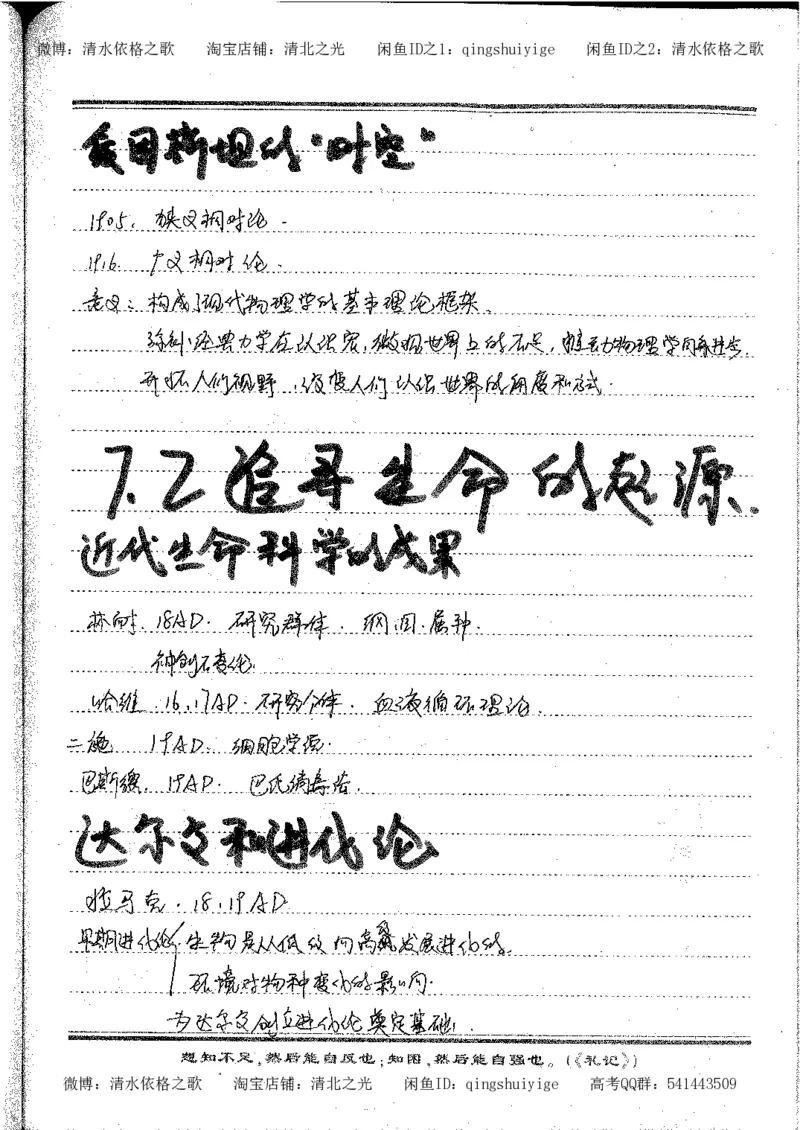 微博：清水依格之歌 淘宝店铺：清北之光 闲鱼ID之1：qingshuiyige 闲鱼ID之2：清水依格之歌
爱因斯坦的“时空”
1905. 狭义相对论.
1916. 广义相对论.
意义：构成了现代物理学的基本理论框架.
弥补经典力学在认识宏、微观世界上的不足，推动物理学向前进步
开拓人们视野，改变人们认识世界的角度和方式.
7.2 追寻生命的起源.
近代生命科学的成果
林耐. 18AD. 研究群体. 纲.目.属.种.
神创不变论.
哈维 16.17AD. 研究个体. 血液循环理论.
二施 19AD. 细胞学说.
巴斯德. 19AD. 巴氏消毒法.
达尔文和进化论
拉马克. 18.19AD
早期进化论 生物是从低级向高级发展进化的.
环境对物种变化的影响.
为达尔文创立进化论奠定基础.
想知不足，然后能自反也；知困，然后能自强也。（《礼记》）
微博：清水依格之歌 淘宝店铺：清北之光 闲鱼ID：qingshuiyige 高考QQ群：541443509